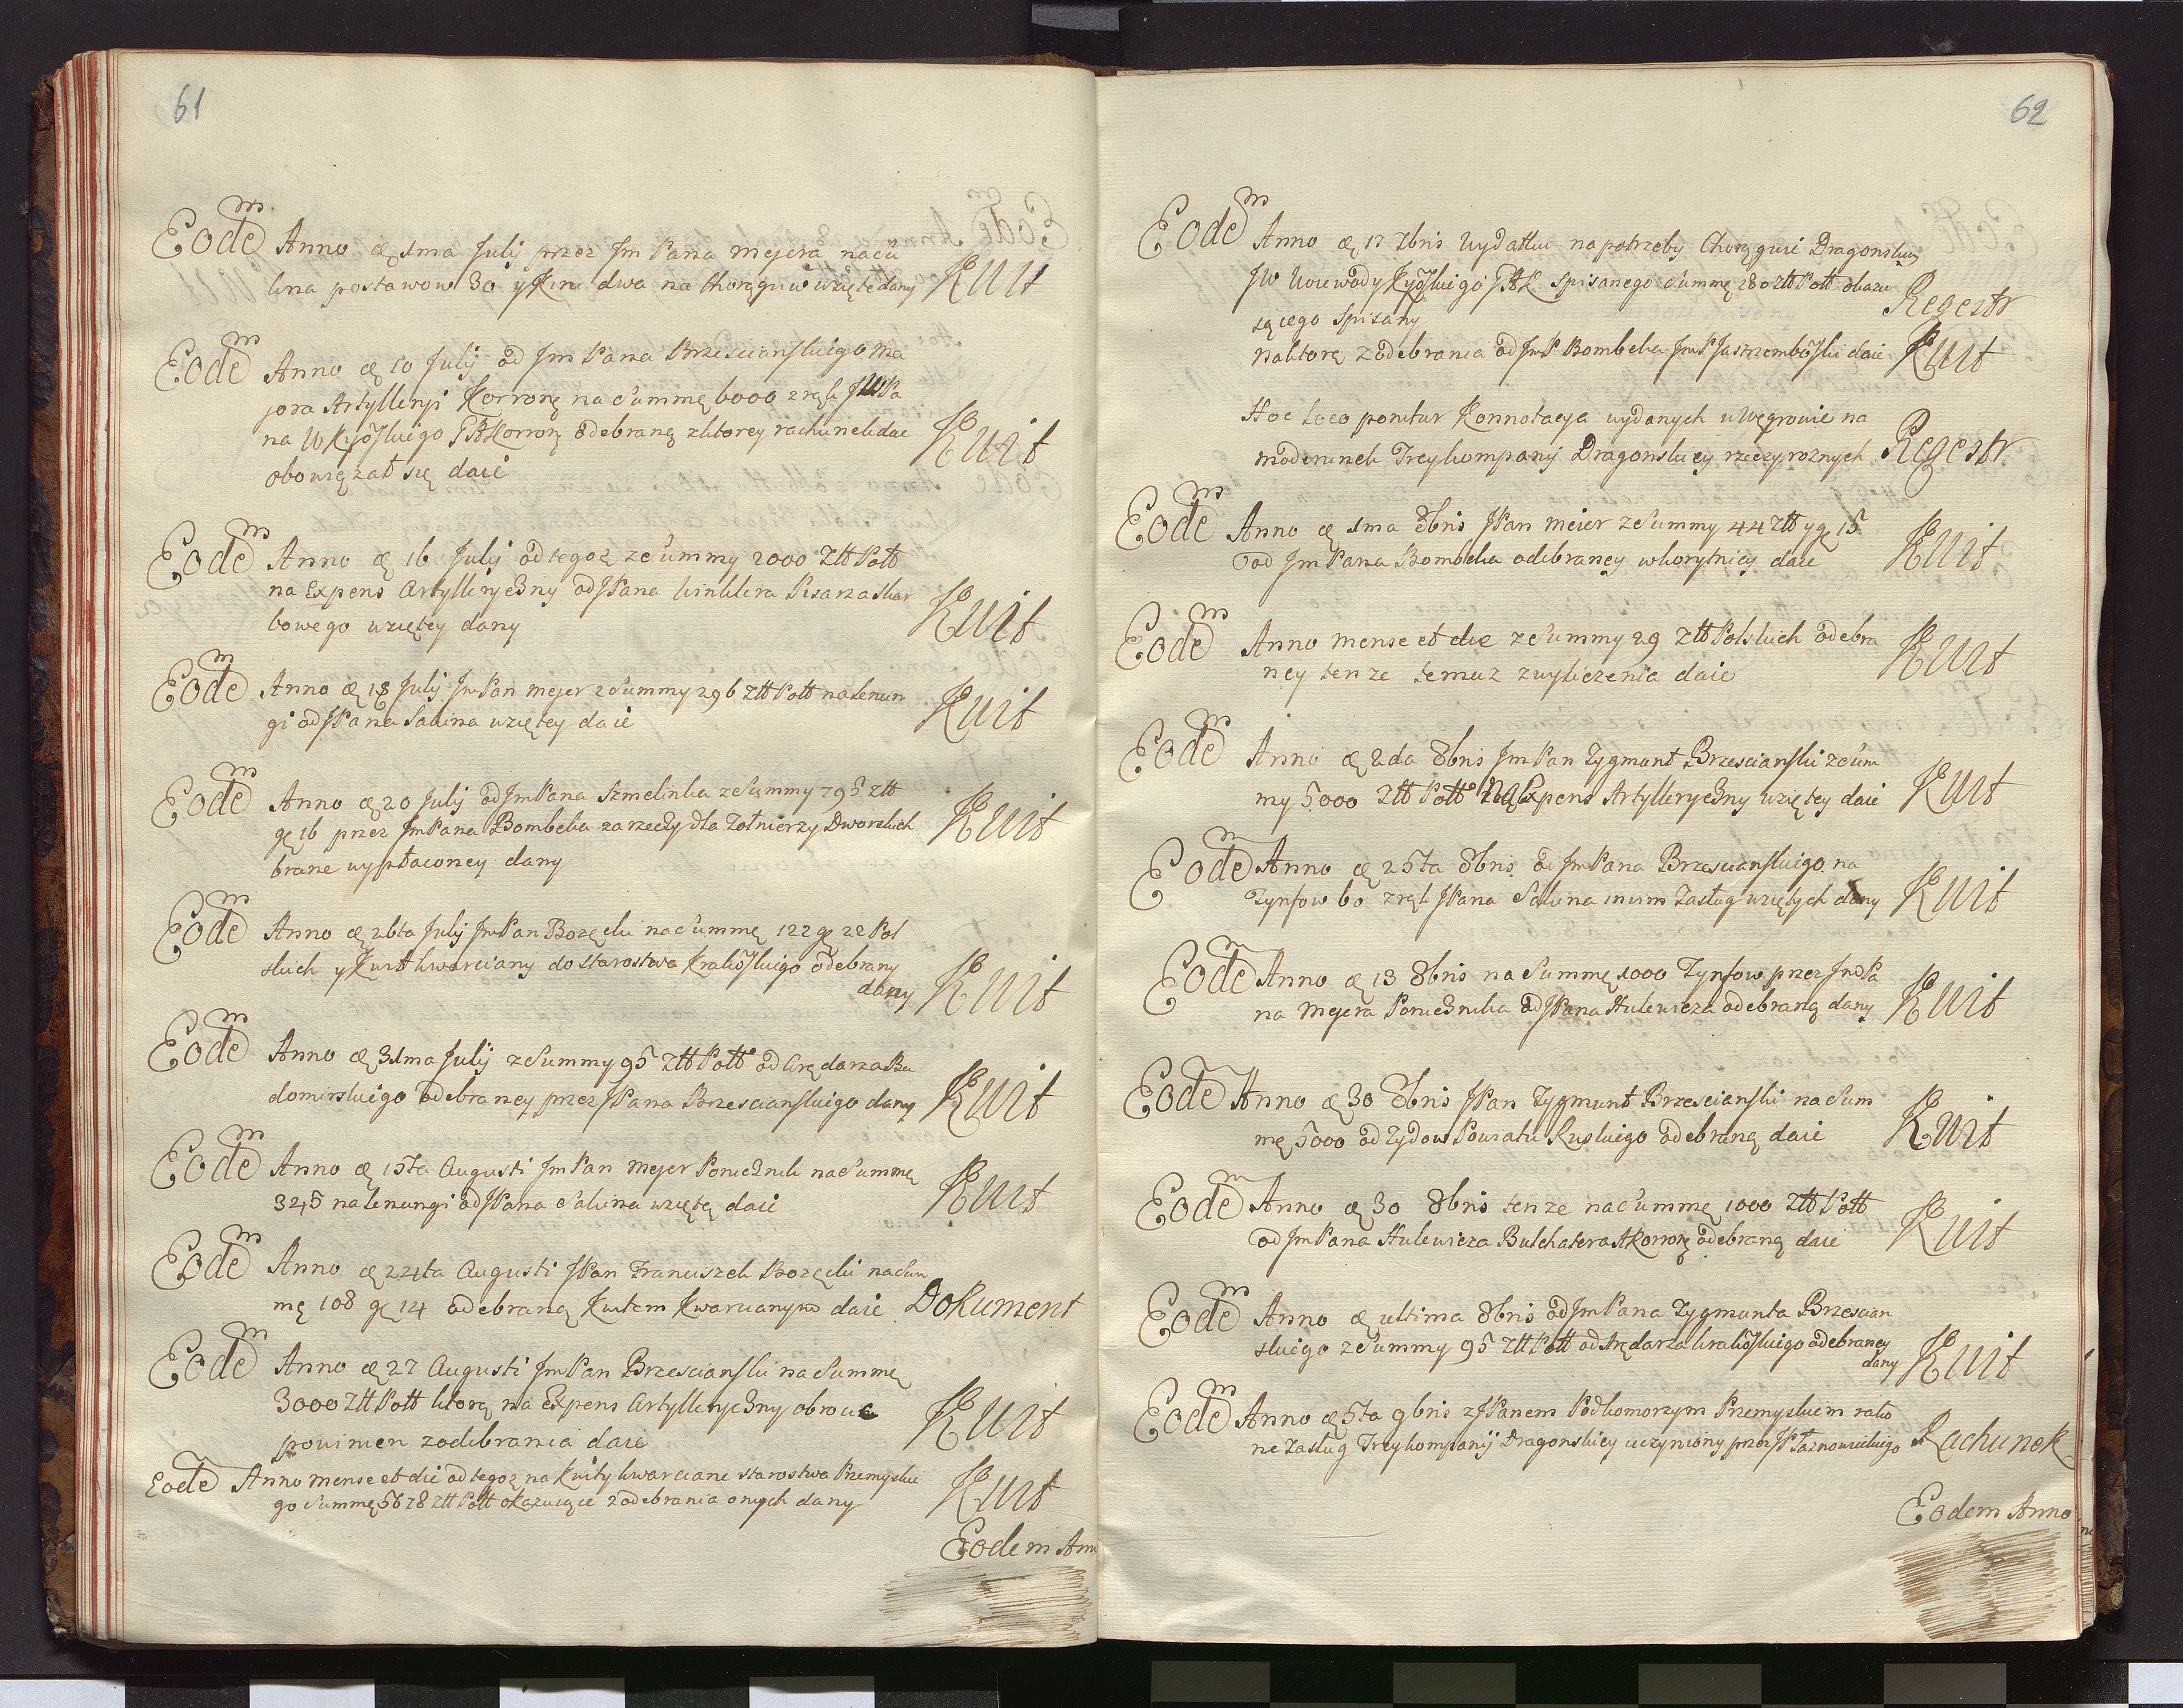 61
Eodem Anno æ 1ma Julij przez Jm Pana mejera na ću
kna postawow 30 y Kin dwa na Chorągiew wzięte dany Kwit
Eodem Anno æ 10 Julij od Jm Pana Brzescianskiego Ma
jora Artyllerji Korroney na Summę 6000 z rąk JW Pa
na W Kijoskiego GA Korrony odebraną z ktorey rachunek dac
obowiązał się daie Kwit
Eodem Anno æ 16 Julij od tegoz z Summy 2000 Złł Poll
na Expens Artylleryczny od JPana kinklera Pisarza Skar
bowego wziętey dany Kwit
Eodem Anno æ 18 Julij Jm Pan mejer z Summy 296 Złł Poll na lenun
gi od JPana Saluna wziętey daie Kwit
Eodem Anno æ 20 Julij od Jm Pana Szmelinka z Summy 795 złł
gę 16 przez Jm Pana Bombeka za rzeczy dla Zołnierzy Dworskich
brane wypłaconey dany Kwit
Eodem Anno æ 26ta Julij Jm Pan Bozęcki na Summę 122 gę 22 Pol
skich y Kwit kwarciany do starostwa Krakoskiego odebrany
dany Kwit
Eodem Anno æ 31ma Julij z Summy 95 Złł Poll od Arędarza Ra
domirskiego odebraney przez JPana Brzescianskiego dany Kwit
Eodem Anno æ 15ta Augusti Jm Pan mejer Poniecznik na Summę
3245 na lenungi od JPana Saluna wziętą daie Kwit
Eodem Anno æ 24ta Augusti JPan Franciszek Bozęcki na Sum
mę 108 gę 14 odebraną Kwitem Kwarcianym daie Dokument
Eodem Anno æ 27 Augusti Jm Pan Brzescianski na Summę
3000 Złł Poll ktorą na Expens Artylleryczny obrocic
powinien z odebrania daie Kwit
Eodem Anno mense et die od tegoz na Kwity kwarciane starostwa Przemyskie
go Summę 5678 Złł Poll okazuiące z odebrania onych dany Kwit
Eodem Ann
62
Eodem Anno æ 17 7bris Wydatku na potrzeby Chorągwi Dragonskiey
JW Woiewody Kijoskiego GAK spisanego Summę 180 złł Poll okazu
iącego spisany Regestr
na ktorą z odebrania od Jm P Bombeka Jm P Jastrzemboski daie Kwit
Hoc loco ponitur Konnotacya wydanych w Węgrowie na
moderunek Trey kompanij Dragonskiey rzeczy roznych Regestr
Eodem Anno æ 1ma 8bris JPan meier z Summy 44 złł y gę 15
od Jm Pana Bombeka odebraney w korytnicy daie Kwit
Eodem Anno mense et die z Summy 29 złł Polskich odebra
ney tenze temuz z wyliczenia daie Kwit
Eodem Anno æ 2da 8bris Jm Pan Zygmunt Brzescianski z Sum
my 5000 Złł Poll Na Expens Artylleryczny wziętey daie Kwit
Eodem Anno æ 25ta 8bris od Jm Pana Brzescianskiego na
Tynfow 60 z rąk JPana Saluna in vim Zasług wziętych dany Kwit
Eodem Anno æ 13 8bris na Summę 1000 Tynfow przez Jm Pa
na Mejera Poniecznika od JPana Hulewicza odebraną dany Kwit
Eodem Anno æ 30 8bris JPan Zygmunt Brzescianski na Sum
mę 5000 od Zydow Powiatu Ruskiego odebraną daie Kwit
Eodem Anno æ 30 8bris tenze na Summę 1000 Złł Poll
od Jm Pana Hulewicza Bukhaltera A Korrony odebraną daie Kwit
Eodem Anno æ ultima 8bris od Jm Pana Zygmunta Brzescian
skiego z Summy 95 Złł Poll od Arędarza krakoskiego odebraney
dany Kwit
Eodem Anno æ 5ta 9bris z JPanem Podkomorzym Przemyskim ratio
ne Zasług Trey kompanij Dragonskiey uczyniony przez JP Łaznowieckiego Rachunek
Eodem Anno